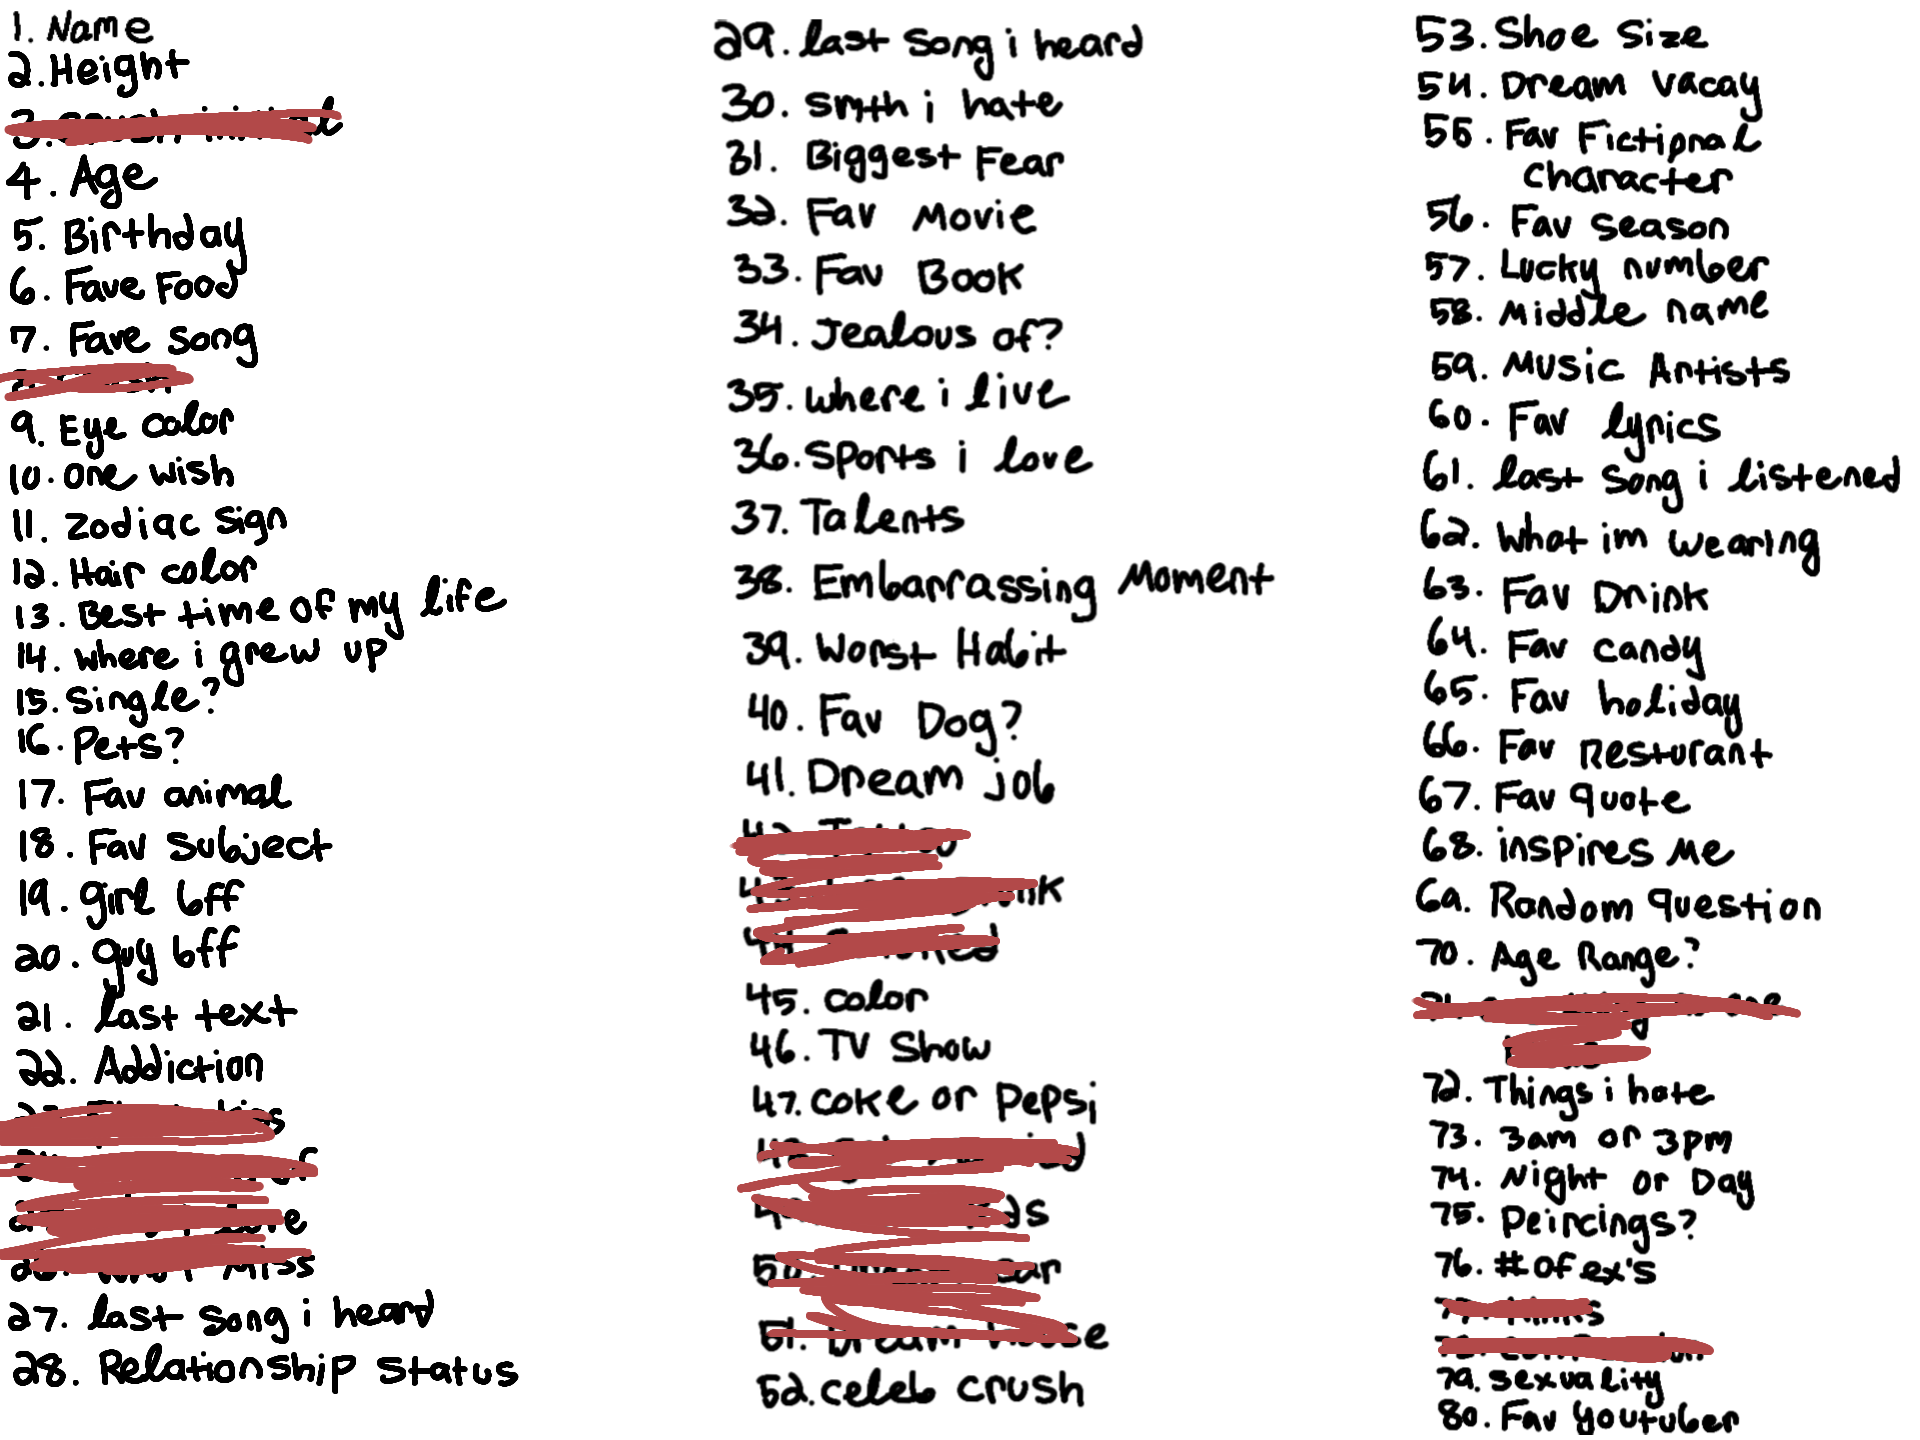 1. Name
2. Height
4. Age
5. Birthday
6. Fave Food
7. Fave song
9. Eye color
10. one wish
11. zodiac sign
12. Hair color
13. Best time of my life
14. where i grew up
15. single?
16. Pets?
17. Fav animal
18. Fav subject
19. girl bff
20. guy bff
21. last text
22. Addiction
27. last song i heard
28. Relationship status
29. last song i heard
30. smth i hate
31. Biggest Fear
32. Fav Movie
33. Fav Book
34. Jealous of?
35. where i live
36. sports i love
37. Talents
38. Embarrassing Moment
39. Worst Habit
40. Fav Dog?
41. Dream job
45. color
46. TV Show
47. coke or Pepsi
51. Dream House
52. celeb crush
53. Shoe Size
54. Dream vacay
55. Fav Fictional
character
56. Fav season
57. Lucky number
58. Middle name
59. Music Artists
60. Fav lyrics
61. last song i listened
62. what im wearing
63. Fav Drink
64. Fav candy
65. Fav holiday
66. Fav Resturant
67. Fav quote
68. inspires me
69. Random question
70. Age Range?
72. Things i hate
73. 3am or 3pm
74. Night or Day
75. Peircings?
76. # of ex's
79. sexuality
80. Fav youtuber